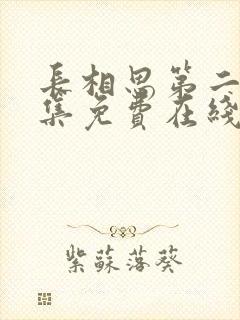 長相思第二
集免費在綫
紫蘇落葵